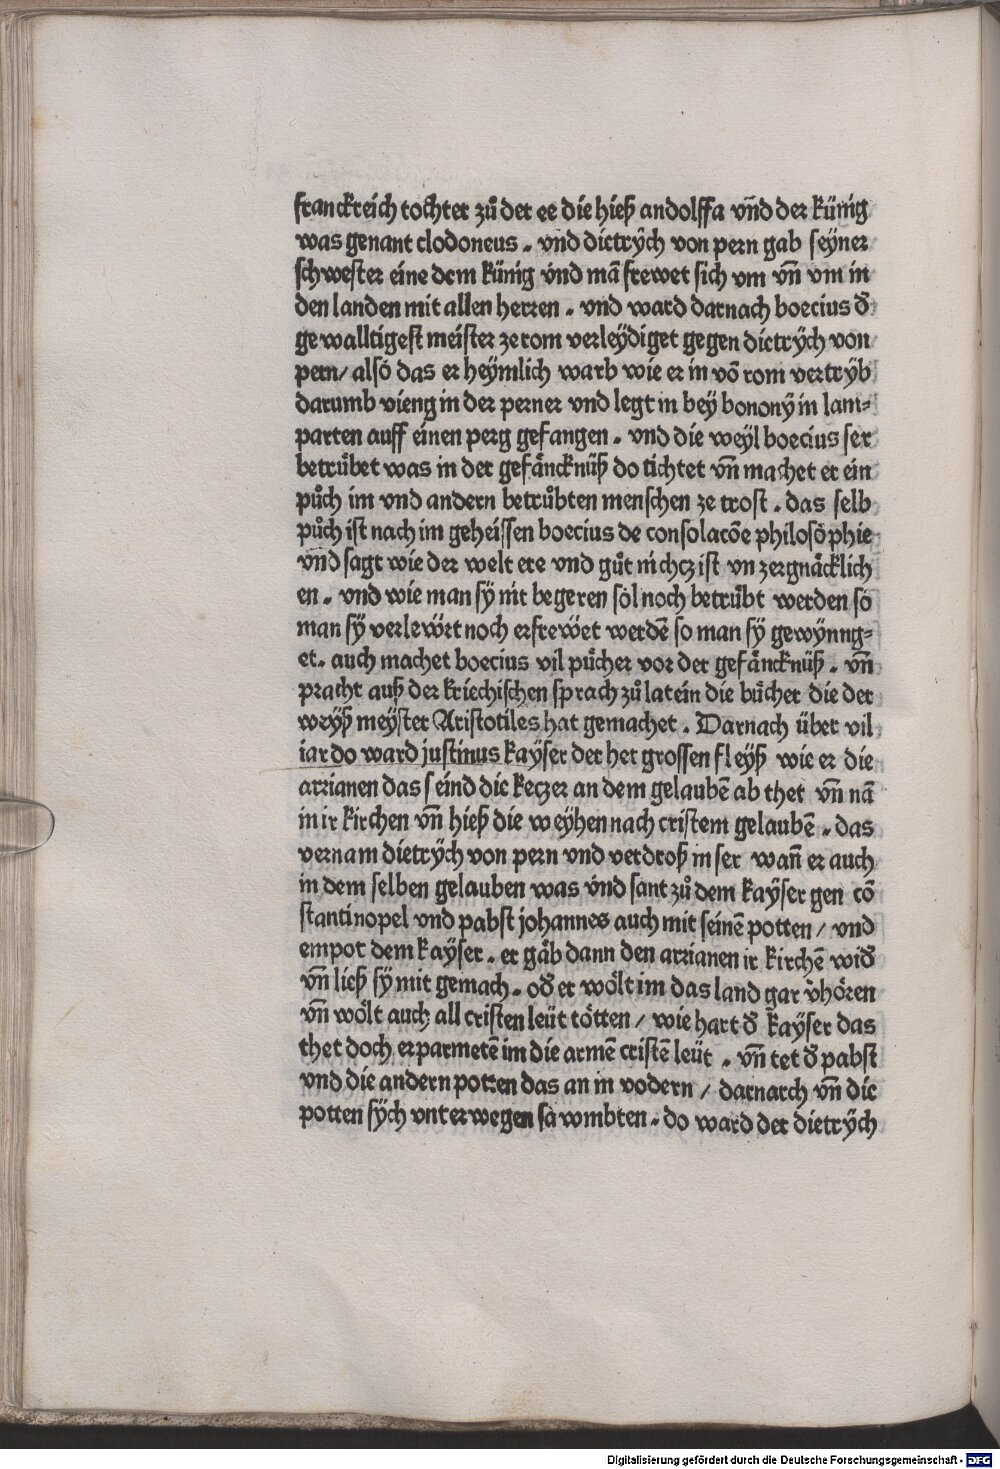 franckreich tochter zů der ee die hieß andolffa vñd der künig
was genant clodoneus . vnd dietrÿch von pern gab seÿner
schwester eine dem künig vnd mã frewet sich vm vñ vm in
den landen mit allen herren . vnd ward darnach boecius đ
gewalltigest meister ze rom verleÿdiget gegen dietrÿch von
pern/ also das er heÿmlich warb wie er in võ rom vertrÿb
darumb vieng in der perner vnd legt in beÿ bononÿ in lam⸗
parten auff einen perg gefangen . vnd die weÿl boecius ser
betrůbet was in der gefåncknüß do tichtet vñ machet er ein
půch im vnd andern betrůbten menschen ze trost . das selb
půch ist nach im geheissen boecius de consolacõe philosophie
vñd sagt wie der welt ere vnd gůt nichcz ist vn zergnåcklich
en . vnd wie man sÿ nit begeren sol noch betrůbt werden so
man sÿ verlewrt noch erfrewet werdẽ so man sÿ gewÿnng⸗
et. auch machet boecius vil pücher vor der gefåncknüß . vñ
pracht auß der kriechischen sprach zů latein die bücher die der
weÿß meÿster Aristotiles hat gemachet . Darnach über vil
iar do ward justinus kaÿser der het grossen fleÿß wie er die
arrianen das seind die keczer an dem gelaubẽ ab thet vñ nã
in ir kirchen vñ hieß die weÿhen nach cristem gelaubẽ . das
vernam dietrÿch von pern vnd verdroß in ser wañ er auch
in dem selben gelauben was vnd sant zů dem kaÿser gen cõ
stantinopel vnd pabst johannes auch mit seinẽ potten / vnd
empot dem kaÿser . er gåb dann den arrianen ir kirchẽ wiđ
vñ ließ sÿ mit gemach . ođ er wölt im das land gar v̉hören
vñ wölt auch all cristen leüt tötten / wie hart đ kaÿser das
thet doch erparmetẽ im die armẽ cristẽ leüt . vñ tet đ pabst
vnd die andern potten das an in vodern / darnarch vñ die
potten sÿch vnterwegen sawmbten . do ward der dietrÿch
Digitalisierung gefördert durch die Deutsche Forschungsgemeinschaft - DFG